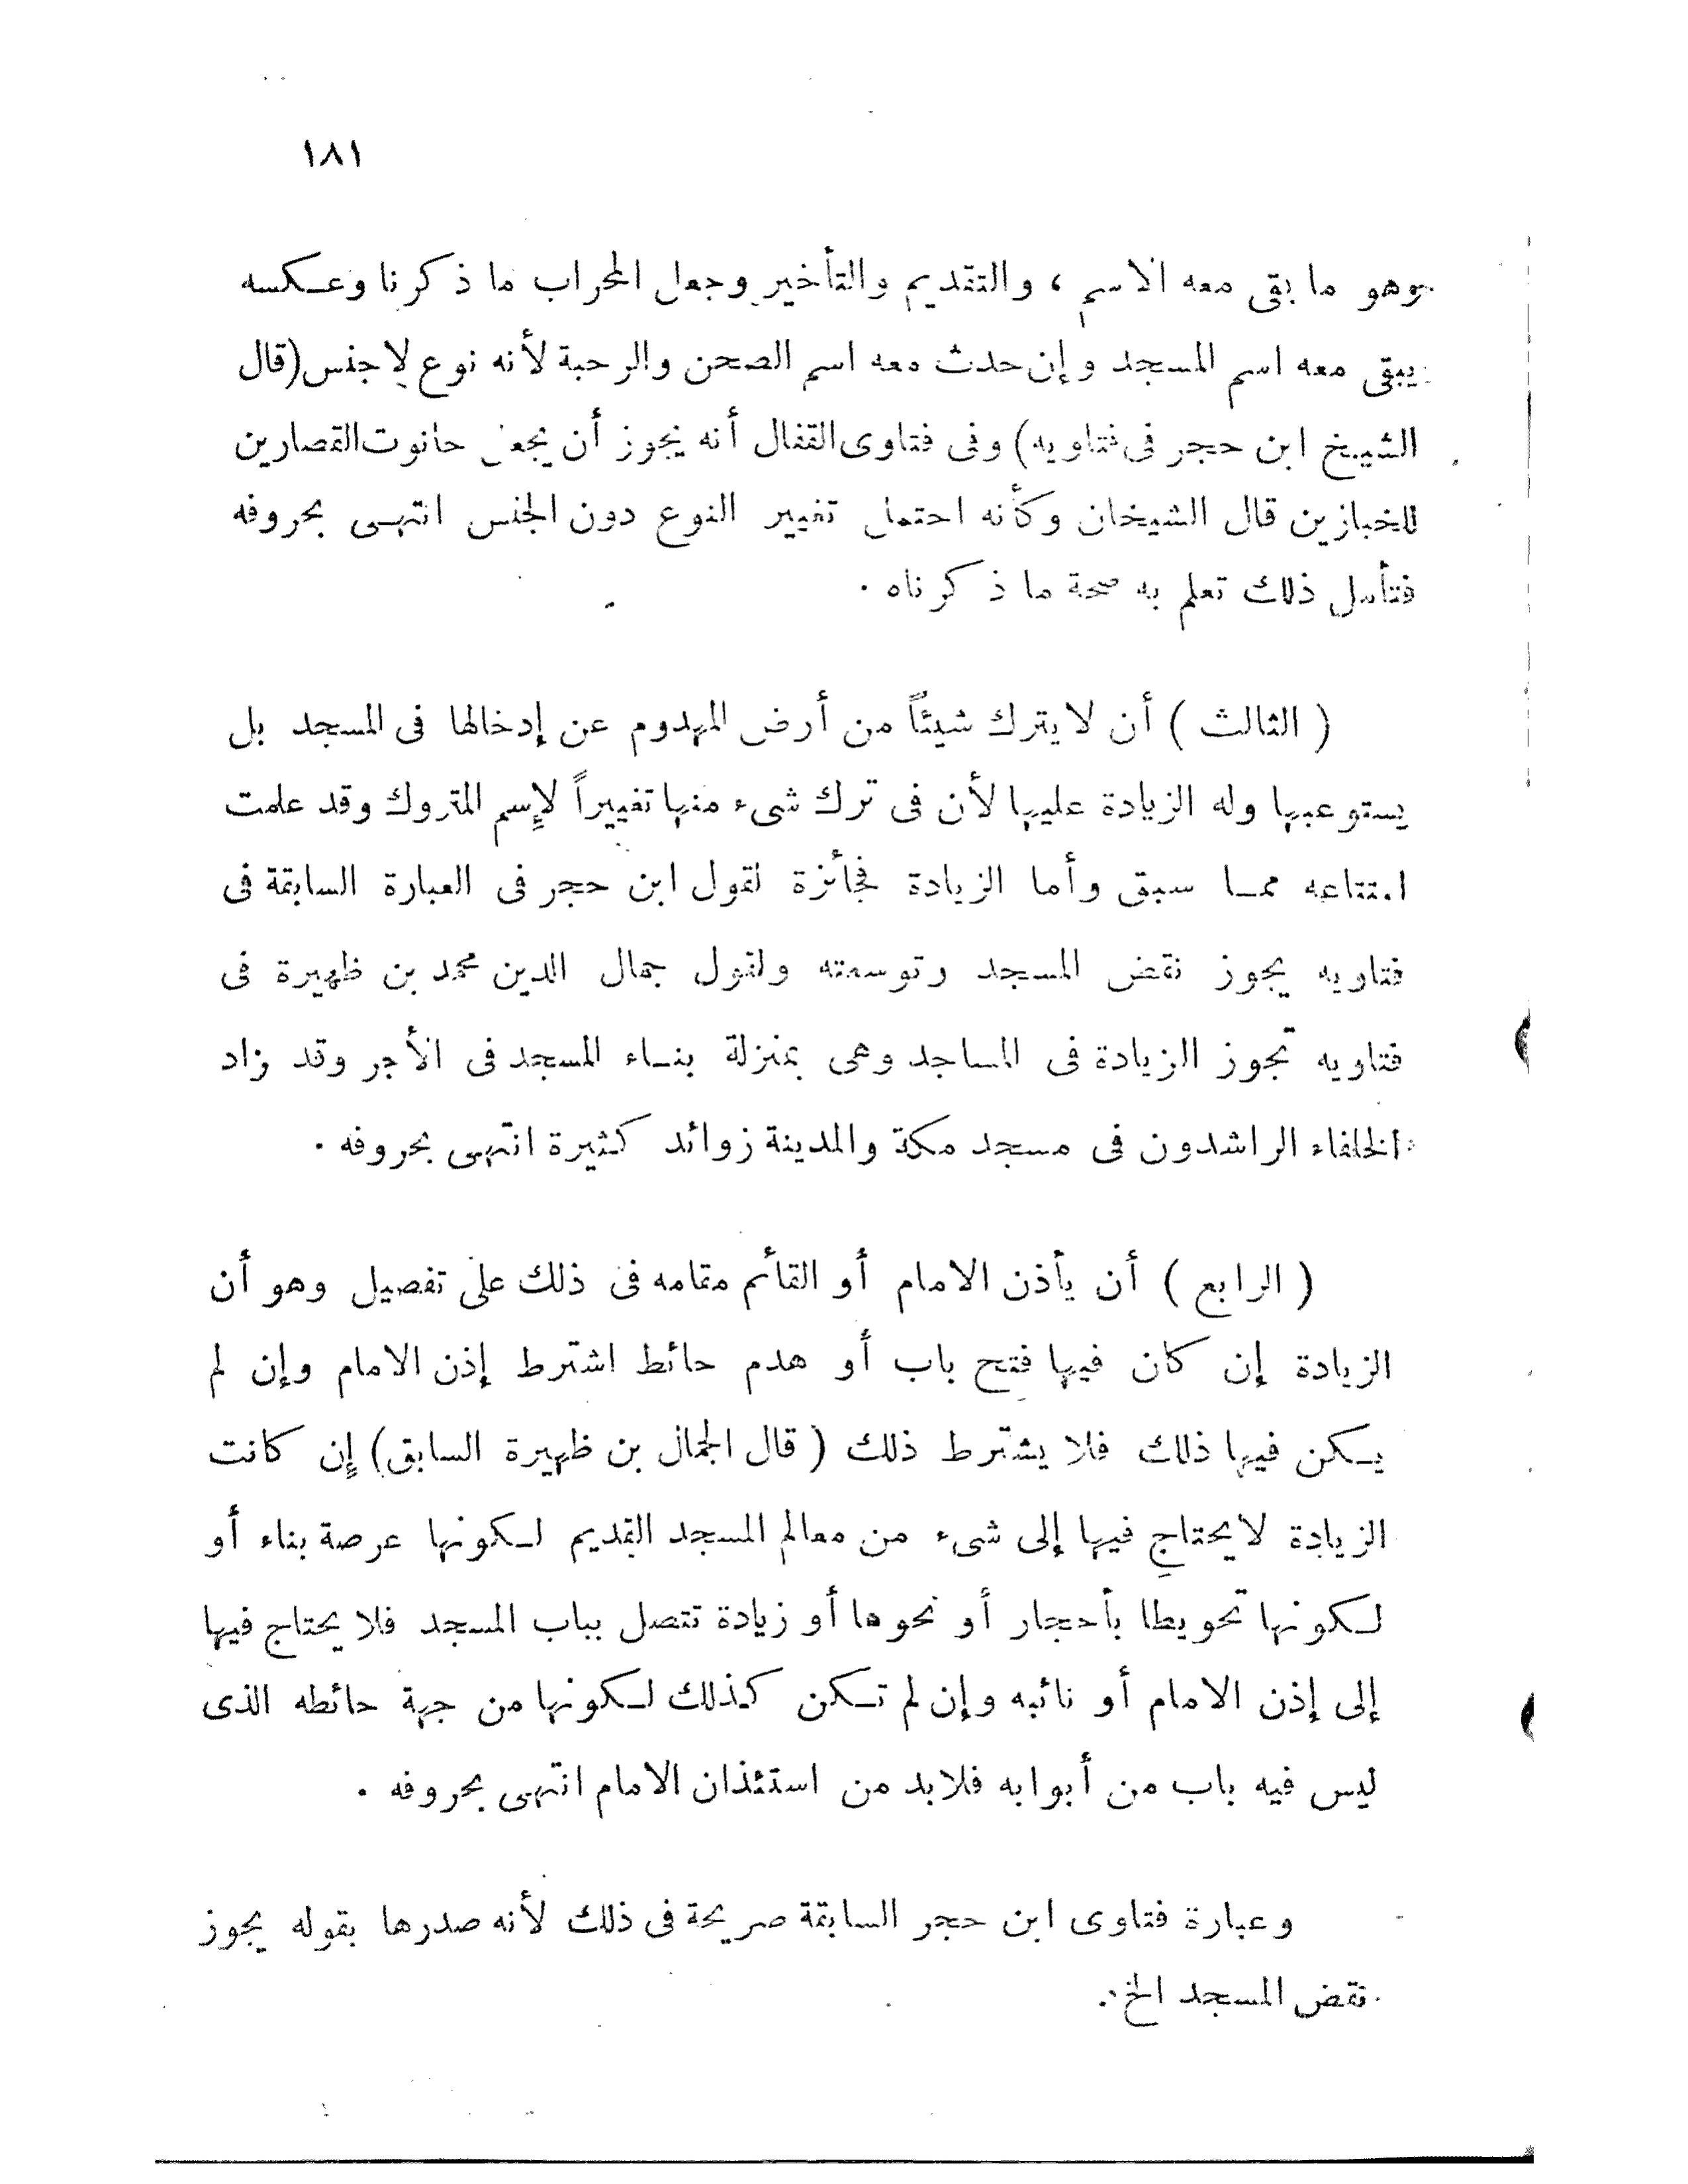 ١٨١
وهو ما بقى معه الاسم ، والتقديم والتأخير وجعل المحراب ما ذكرنا وعكسه
يبقى معه اسم المسجد وإن حدث معه اسم الصحن والرحبة لأنه نوع لا جنس (قال
الشيخ ابن حجر فى فتاويه) وفى فتاوى القفال أنه يجوز أن يجعل حانوت القصارين
للخبازين قال الشيخان وكأنه احتمل تغيير النوع دون الجنس انتهى بحروفه
فتأمل ذلك تعلم به صحة ما ذكرناه .
( الثالث ) أن لا يترك شيئاً من أرض المهدوم عن إدخالها فى المسجد بل
يستوعبها وله الزيادة عليها لأن فى ترك شىء منها تغييراً لإسم المتروك وقد علمت
امتناعه مما سبق وأما الزيادة فجأئزة لقول ابن حجر فى العبارة السابقة فى
فتاويه يجوز نقض المسجد وتوسعته ولقول جمال الدين محمد بن ظهيرة فى
فتاويه تجوز الزيادة فى المساجد وهى بمنزلة بناء المسجد فى الأجر وقد زاد
الخلفاء الراشدون فى مسجد مكة والمدينة زوائد كثيرة انتهى بحروفه .
( الرابع ) أن يأذن الامام أو القأئم مقامه فى ذلك على تفصيل وهو أن
الزيادة إن كان فيها فتح باب أو هدم حائط اشترط إذن الامام وإن لم
يكن فيها ذلك فلا يشترط ذلك ( قال الجمال بن ظهيرة السابق) إن كانت
الزيادة لا يحتاج فيها إلى شىء من معالم المسجد القديم لكونها عرصة بناء أو
لكونها تحويطا بأحجار أو نحوها أو زيادة تتصل بباب المسجد فلا يحتاج فيها
إلى إذن الامام أو نائبه وإن لم تكن كذلك لكونها من جهة حائطه الذى
ليس فيه باب من أبوابه فلابد من استئذان الامام انتهى بحروفه .
وعبارة فتاوى ابن حجر السابقة صريحة فى ذلك لأنه صدرها بقوله يجوز
نقض المسجد الخ .